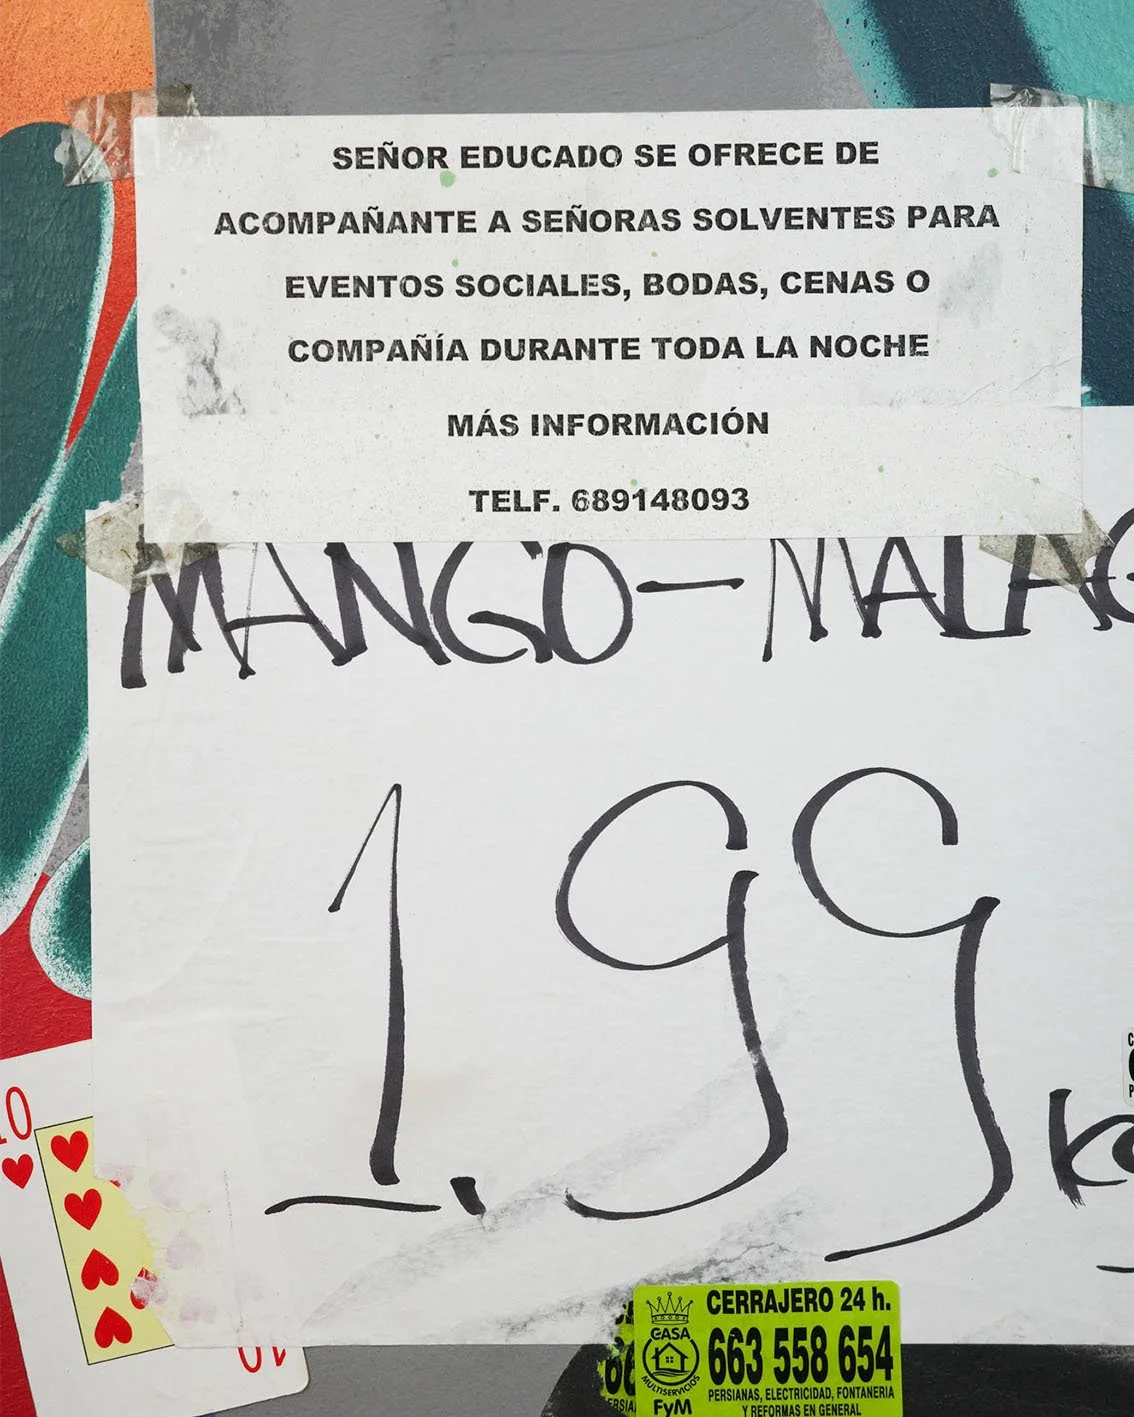 SEÑOR EDUCADO SE OFRECE DE
ACOMPAÑANTE A SEÑORAS SOLVENTES PARA
EVENTOS SOCIALES, BODAS, CENAS O
COMPAÑÍA DURANTE TODA LA NOCHE
MÁS INFORMACIÓN
TELF. 689148093
MANGO - MALAG
1.99
10
10
CERRAJERO 24 h.
CASA
MULTISERVICIOS
FyM
663 558 654
PERSIANAS, ELECTRICIDAD, FONTANERIA
Y REFORMAS EN GENERAL